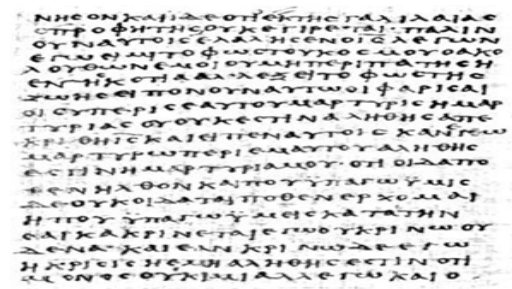 ΝΗϹΟΝ ΚΑΙ ΙΔΕ ΟΤΙ ΕΚ ΤΗϹ ΓΑΛΙΛΑΙΑϹ
Ο ΠΡΟΦΗΤΗϹ ΟΥΚ ΕΓΙΡΕΤΑΙ· ΠΑΛΙΝ
ΟΥΝ ΑΥΤΟΙϹ ΕΛΑΛΗϹΕΝ Ο ΙϹ ΛΕΓΩΝ
ΕΓΩ ΕΙΜΙ ΤΟ ΦΩϹ ΤΟΥ ΚΟϹΜΟΥ Ο ΑΚΟ
ΛΟΥΘΩΝ ΕΜΟΙ ΟΥ ΜΗ ΠΕΡΙΠΑΤΗϹΗ
ΕΝ ΤΗ ϹΚΟΤΙΑ ΑΛΛ ΕΞΕΙ ΤΟ ΦΩϹ ΤΗϹ
ΖΩΗϹ ΕΙΠΟΝ ΟΥΝ ΑΥΤΩ ΟΙ ΦΑΡΙϹΑΙ
ΟΙ ϹΥ ΠΕΡΙ ϹΕΑΥΤΟΥ ΜΑΡΤΥΡΙϹ Η ΜΑΡ
ΤΥΡΙΑ ϹΟΥ ΟΥΚ ΕϹΤΙΝ ΑΛΗΘΗϹ ΑΠΕ
ΚΡΙΘΗ ΙϹ ΚΑΙ ΕΙΠΕΝ ΑΥΤΟΙϹ ΚΑΝ ΕΓΩ
ΜΑΡΤΥΡΩ ΠΕΡΙ ΕΜΑΥΤΟΥ ΑΛΗΘΗϹ
ΕϹΤΙΝ Η ΜΑΡΤΥΡΙΑ ΜΟΥ ΟΤΙ ΟΙΔΑ ΠΟ
ΘΕΝ ΗΛΘΟΝ ΚΑΙ ΠΟΥ ΥΠΑΓΩ ΥΜΙϹ
ΔΕ ΟΥΚ ΟΙΔΑΤΑΙ ΠΟΘΕΝ ΕΡΧΟΜΑΙ
Η ΠΟΥ ΥΠΑΓΩ ΥΜΕΙϹ ΚΑΤΑ ΤΗΝ
ϹΑΡΚΑ ΚΡΙΝΕΤΑΙ ΕΓΩ ΟΥ ΚΡΙΝΩ ΟΥ
ΔΕΝΑ ΚΑΙ ΕΝ ΚΡΙΝΩ ΔΕ ΕΓΩ
Η ΚΡΙϹΙϹ Η ΕΜΗ ΑΛΗΘΗϹ ΕϹΤΙΝ ΟΤΙ
ΜΟΝΟϹ ΟΥΚ ΙΜΙ ΑΛΛ ΕΓΩ ΚΑΙ Ο